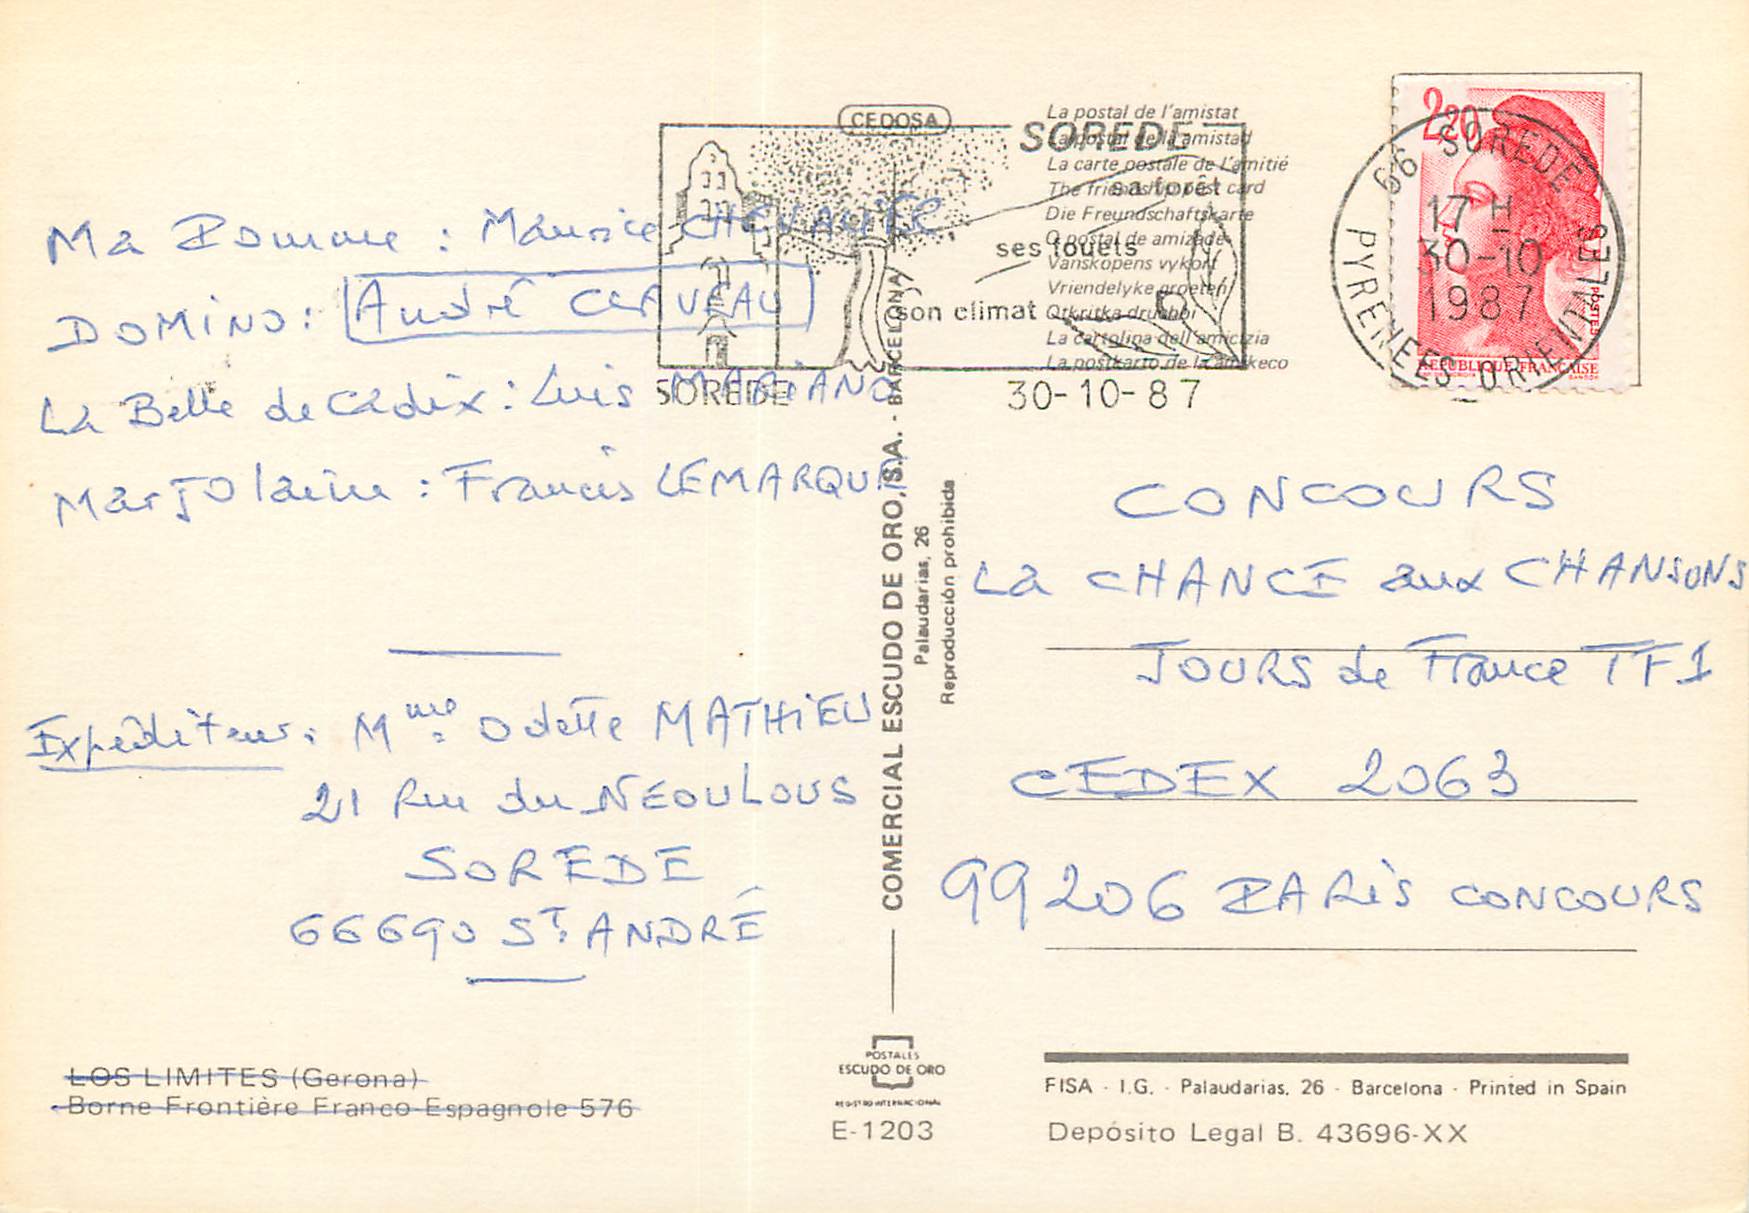 Ma Pomme : Maurice CHEVALIER
DOMINO : André CLAVEAU
La Belle de Cadix : Luis MARIANO
Marjolaine : Francis LEMARQUE
Expéditeur : Mme Odette MATHIEU
21 Rue du NEOULOUS
SOREDE
66690 ST. ANDRÉ
LOS LIMITES (Gerona)
Borne Frontière Franco-Espagnole 576
CEDOSA
SOREDE
sa forêt
ses fouets
son climat
SOREDE
30-10-87
La postal de l'amistat
La postal de la amistad
La carte postale de L'amitié
The friendship post card
Die Freundschaftskarte
O postal de amizade
Vanskopens vykort
Vriendelyke groeten
Otkritka druchbi
La cartolina dell'amicizia
La postkarto de la amikeco
2,20
POSTES
REPUBLIQUE FRANÇAISE
66 SOREDE
17 H
30-10
1987
PYRENEES ORIENTALES
COMERCIAL ESCUDO DE ORO, S.A. - BARCELONA
Palaudarias, 26
Reproducción prohibida
CONCOURS
La CHANCE aux CHANSONS
JOURS de France TF1
CEDEX 2063
99206 PARIS CONCOURS
POSTALES
ESCUDO DE ORO
REGISTRO INTERNACIONAL
E-1203
FISA - I.G. - Palaudarias, 26 - Barcelona - Printed in Spain
Depósito Legal B. 43696-XX